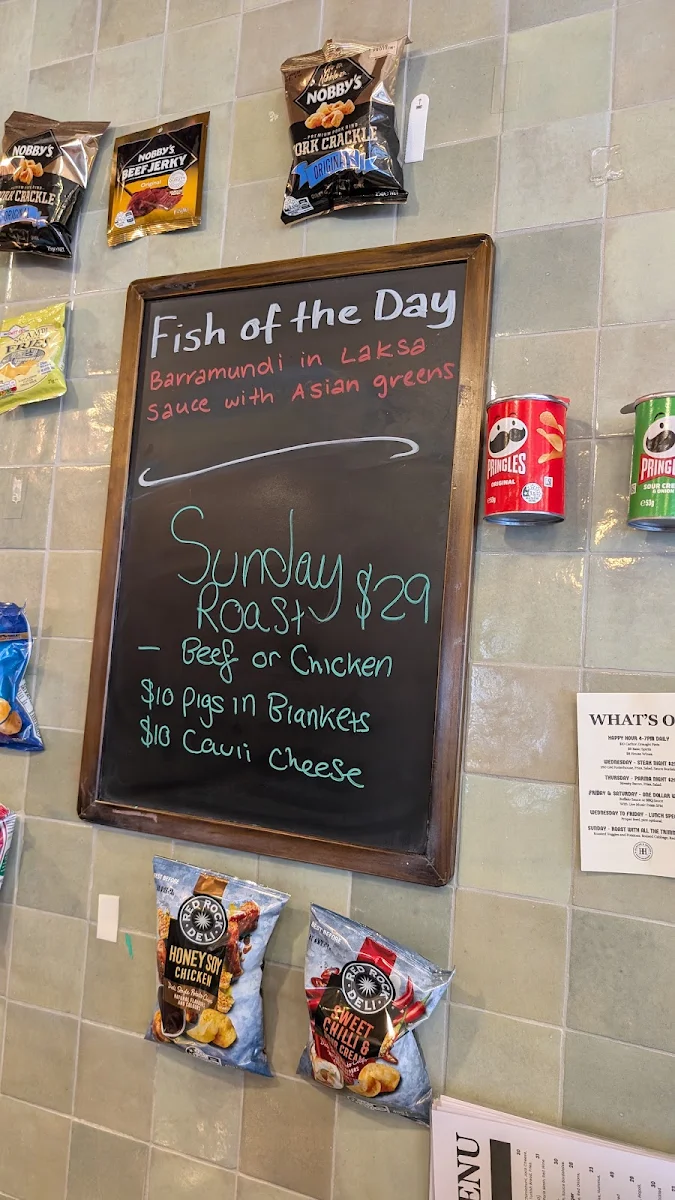 NOBBY'S
PREMIUM PORK RIND
ORK CRACKLE
ORIGINAL
NOBBY'S
ORK CRACKLE
NOBBY'S
BEEF JERKY
Original
FRIES
Fish of the Day
Barramundi in Laksa
sauce with Asian greens
Sunday
Roast $29
- Beef or Chicken
$10 Pigs in Blankets
$10 Cauli Cheese
PRINGLES
ORIGINAL
53g
PRINGL
SOUR CRE
& ONION
53g
WHAT'S O
HAPPY HOUR 4-7PM DAILY
WEDNESDAY - STEAK NIGHT
THURSDAY - PARMA NIGHT
FRIDAY & SATURDAY - ONE DOLLAR W
WEDNESDAY TO FRIDAY - LUNCH SPE
SUNDAY - ROAST WITH ALL THE TRIMM
BEST BEFORE
RED ROCK
DELI
HONEY SOY
CHICKEN
RED ROCK
DELI
SWEET
CHILLI &
CREAM
ENU